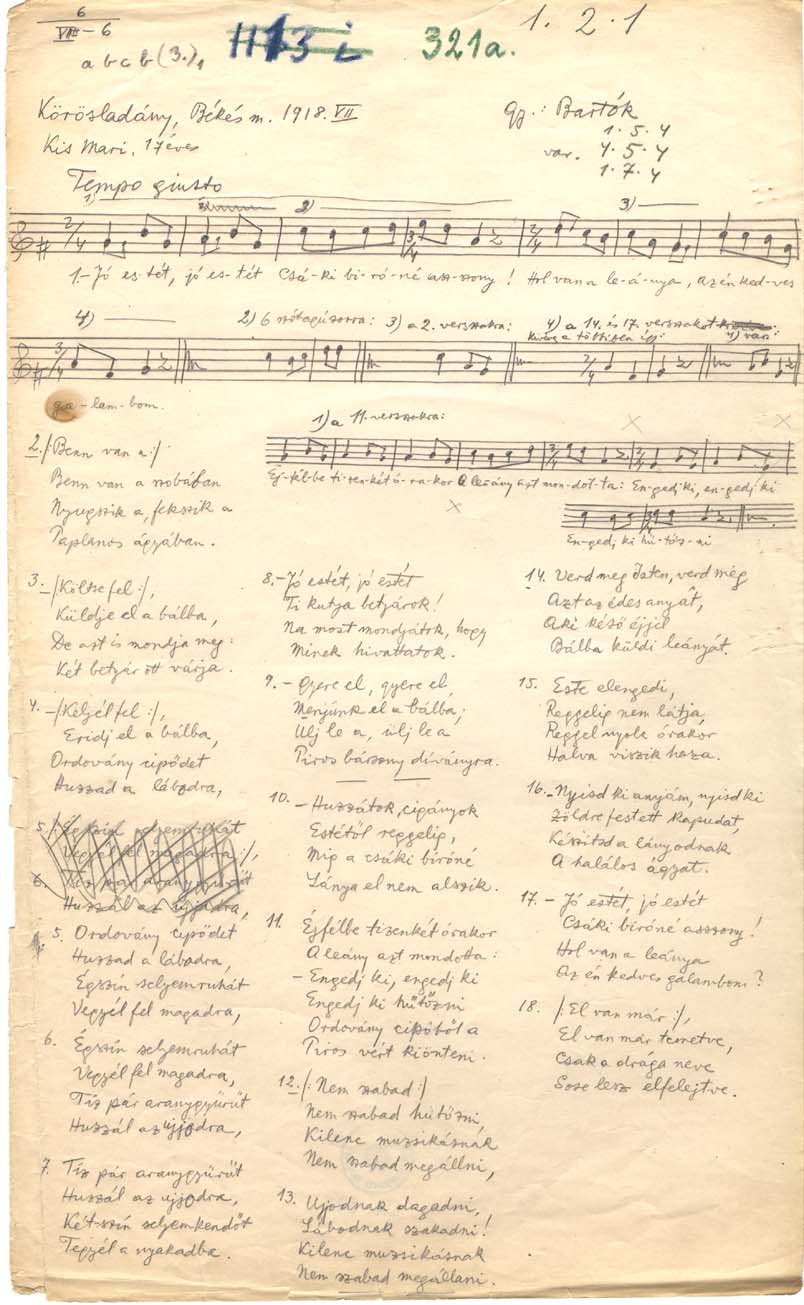 6
VII - 6
a b c b (3.)
321a.
1. 2. 1
Körösladány, Békés m. 1918. VII
Kis Mari, 17 éves
gy.: Bartók
1. 5. 4
var. 4. 5. 4
1. 7. 4
Tempo giusto
1) 2) 3)
1.- Jó es-tét, jó es-tét Csá-ki bi-ró-né asz-szony! Hol van a le-á-nya, az én ked-ves
4) 2) 6 szótagú sorra: 3) a 2. versszakra: 4) a 14. és 17. versszakot
kivéve a többiben így: 4) var:
ga-lam-bom.
1) a 11. versszakra:
Éj-fél-be ti-zen-két ó-ra-kor A leány azt mon-dot-ta: En-gedj ki, en-gedj ki
En-gedj ki hű-tőz-ni
2. /: Benn van a :/
Benn van a szobában
Nyugszik a, fekszik a
Paplanos ágyában.
3. - /: Költse fel :/,
Küldje el a bálba,
De azt is mondja meg:
Két betyár ott várja.
4. - /: Keljél fel :/,
Eridj el a bálba,
Ordovány cipődet
Huzzad a lábadra,
5. Ordovány cipődet
Huzzad a lábadra,
Égszín selyemruhát
Vegyél fel magadra,
6. Égszín selyemruhát
Vegyél fel magadra,
Tíz pár aranygyűrűt
Huzzál az ujjodra,
7. Tíz pár aranygyűrűt
Huzzál az ujjodra,
Két-szín selyemkendőt
Tegyél a nyakadba.
8. - Jó estét, jó estét
Ti kutya betyárok!
Na most mondjátok, hogy
Minek hivattatok.
9. - Gyere el, gyere el,
Menjünk el a bálba;
Ülj le a, ülj le a
Piros bársony díványra.
10. - Huzzátok, cigányok
Estétől reggelig,
Mig a csáki biróné
Lánya el nem alszik.
11. Éjfélbe tizenkét órakor
A leány azt mondotta:
- Engedj ki, engedj ki
Engedj ki hűtőzni
Ordovány cipőből a
Piros vért kiönteni.
12. /: Nem szabad :/
Nem szabad hűtőzni,
Kilenc muzsikásnak
Nem szabad megállni,
13. Ujodnak dagadni,
Lábodnak szakadni!
Kilenc muzsikásnak
Nem szabad megállani.
14. Verd meg Isten, verd meg
Azt az édes anyát,
Aki késő éjjel
Bálba küldi leányát.
15. Este elengedi,
Reggelig nem látja,
Reggel nyolc órakor
Halva viszik haza.
16. - Nyisd ki anyám, nyisd ki
Zöldre festett kapudat,
Készítsd a lányodnak
A halálos ágyat.
17. - Jó estét, jó estét
Csáki biróné asszony!
Hol van a leánya
Az én kedves galambom?
18. /: El van már :/,
El van már temetve,
Csak a drága neve
Sose lesz elfelejtve.